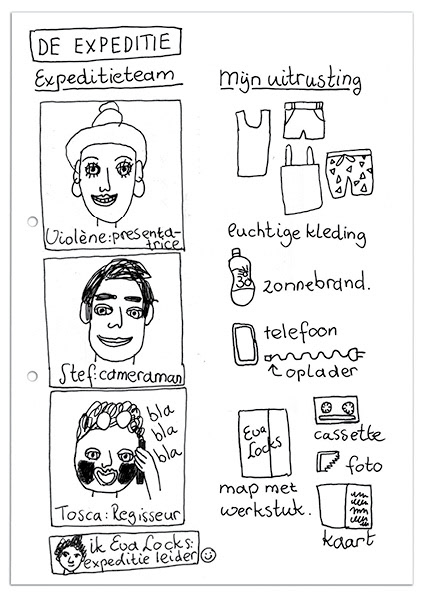 DE EXPEDITIE
Expeditieteam
Violène: presenta-
trice
Stef: cameraman
bla
bla
bla
Tosca: Regisseur
ik Eva Locks:
expeditie leider
Mijn uitrusting
luchtige kleding
30
zonnebrand.
telefoon
oplader
Eva
Locks
map met
werkstuk.
cassette
foto
kaart